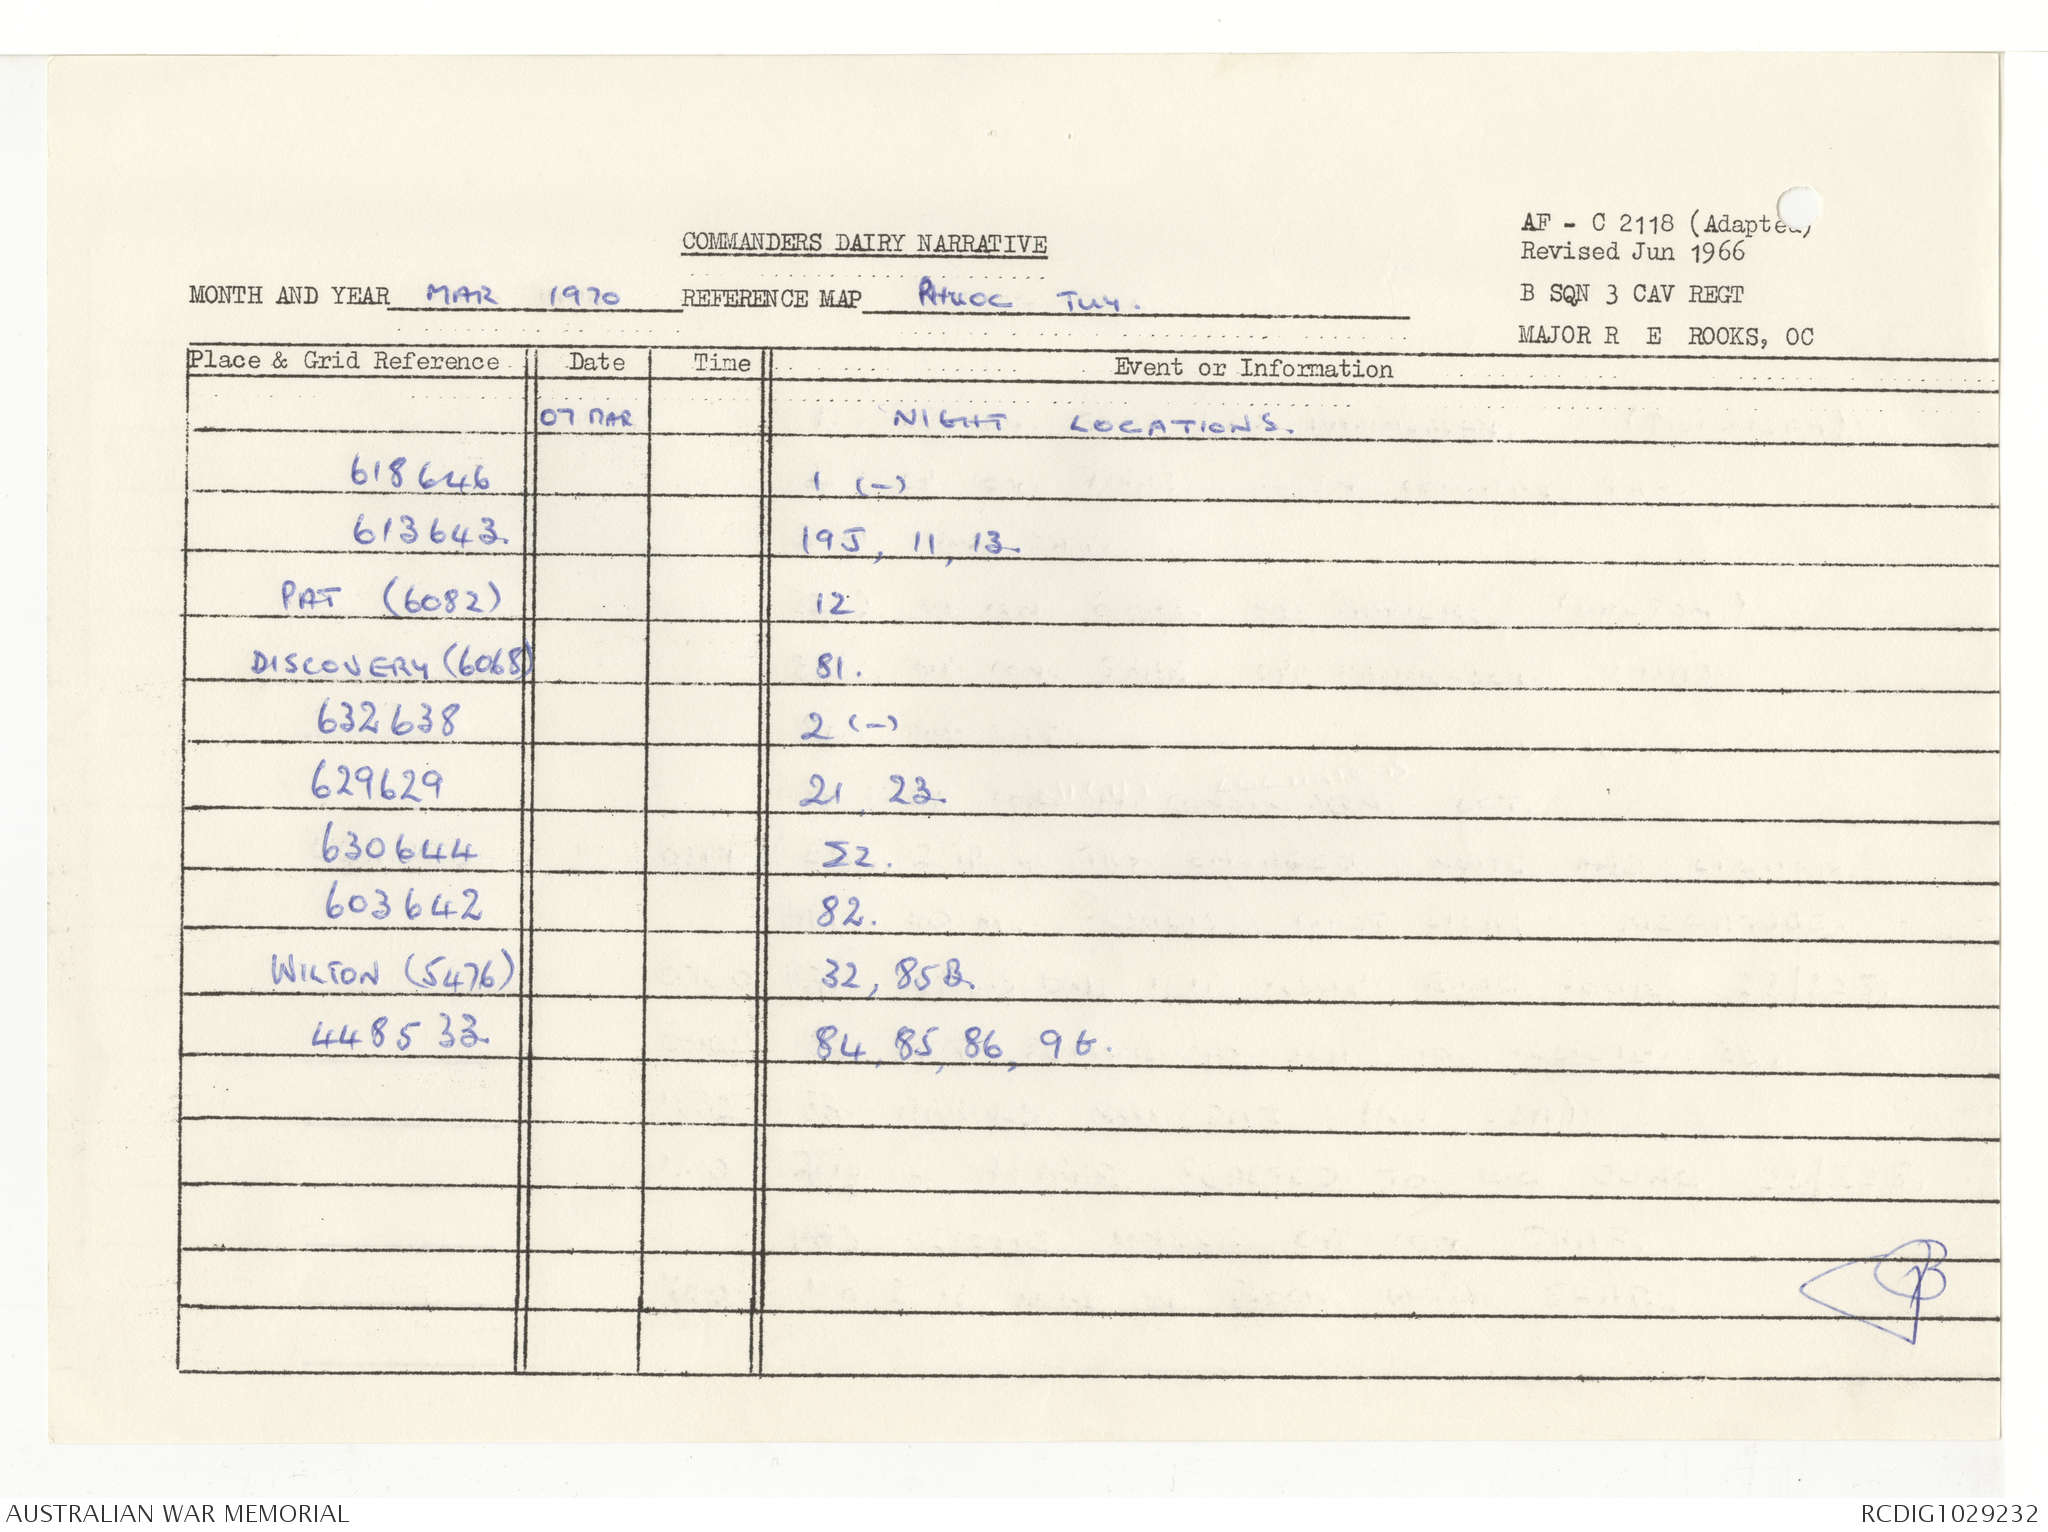 AF - C 2118 (Adapted)
Revised Jun 1966
B SQN 3 CAV REGT
MAJOR R E ROOKS, OC
COMMANDERS DAIRY NARRATIVE
MONTH AND YEAR MAR 1970 REFERENCE MAP PHUOC TUY.
Place & Grid Reference Date Time Event or Information
07 MAR NIGHT LOCATIONS.
618646 1 (-)
613643. 19J, 11, 13.
PAT (6082) 12
DISCOVERY (6068) 81.
632638 2 (-)
629629 21, 23.
630644 22.
603642 82.
WILTON (5476) 32, 85B.
448533. 84, 85, 86, 9G.
AUSTRALIAN WAR MEMORIAL
RCDIG1029232